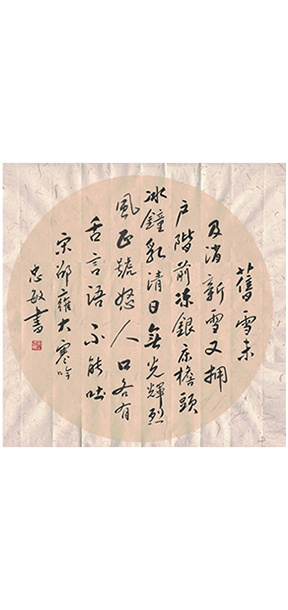 舊雪未
及消新雪又拥
戶階前凍銀床檐頭
冰鐘乳清日無光輝烈
風正號怒人口各有
舌言語不能吐
宋邵雍大寒吟
忠敏書